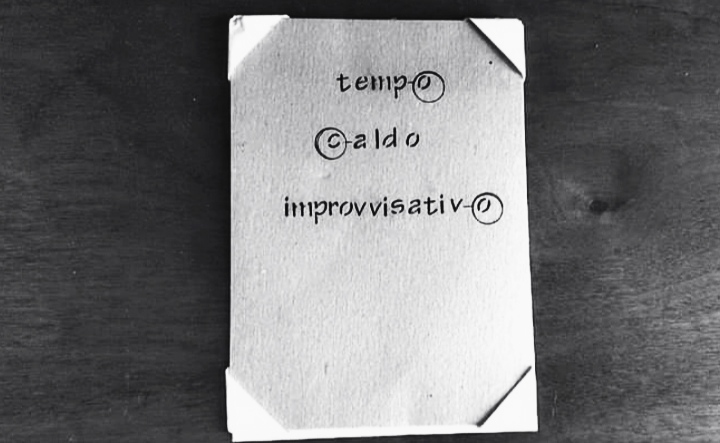 tempo
caldo
improvvisativo